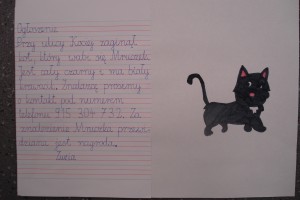 Ogłoszenie
Przy ulicy Kociej zaginął
kot, który wabi się Mruczek.
Jest cały czarny i ma biały
krawat. Znalazcę prosimy
o kontakt pod numerem
telefonu 915 304 732. Za
znalezienie Mruczka przewi-
dziana jest nagroda.
Zuzia